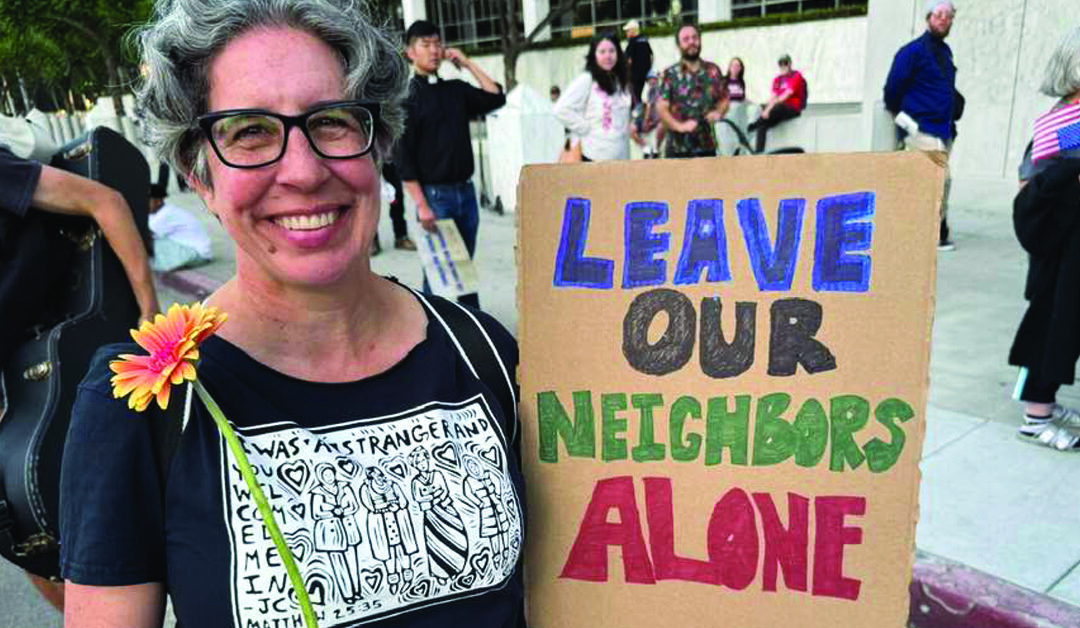 LEAVE
OUR
NEIGHBORS
ALONE
I WAS A STRANGER AND
YOU
WEL
COM
ED
ME
IN
-JC
MATTHEW 25:35